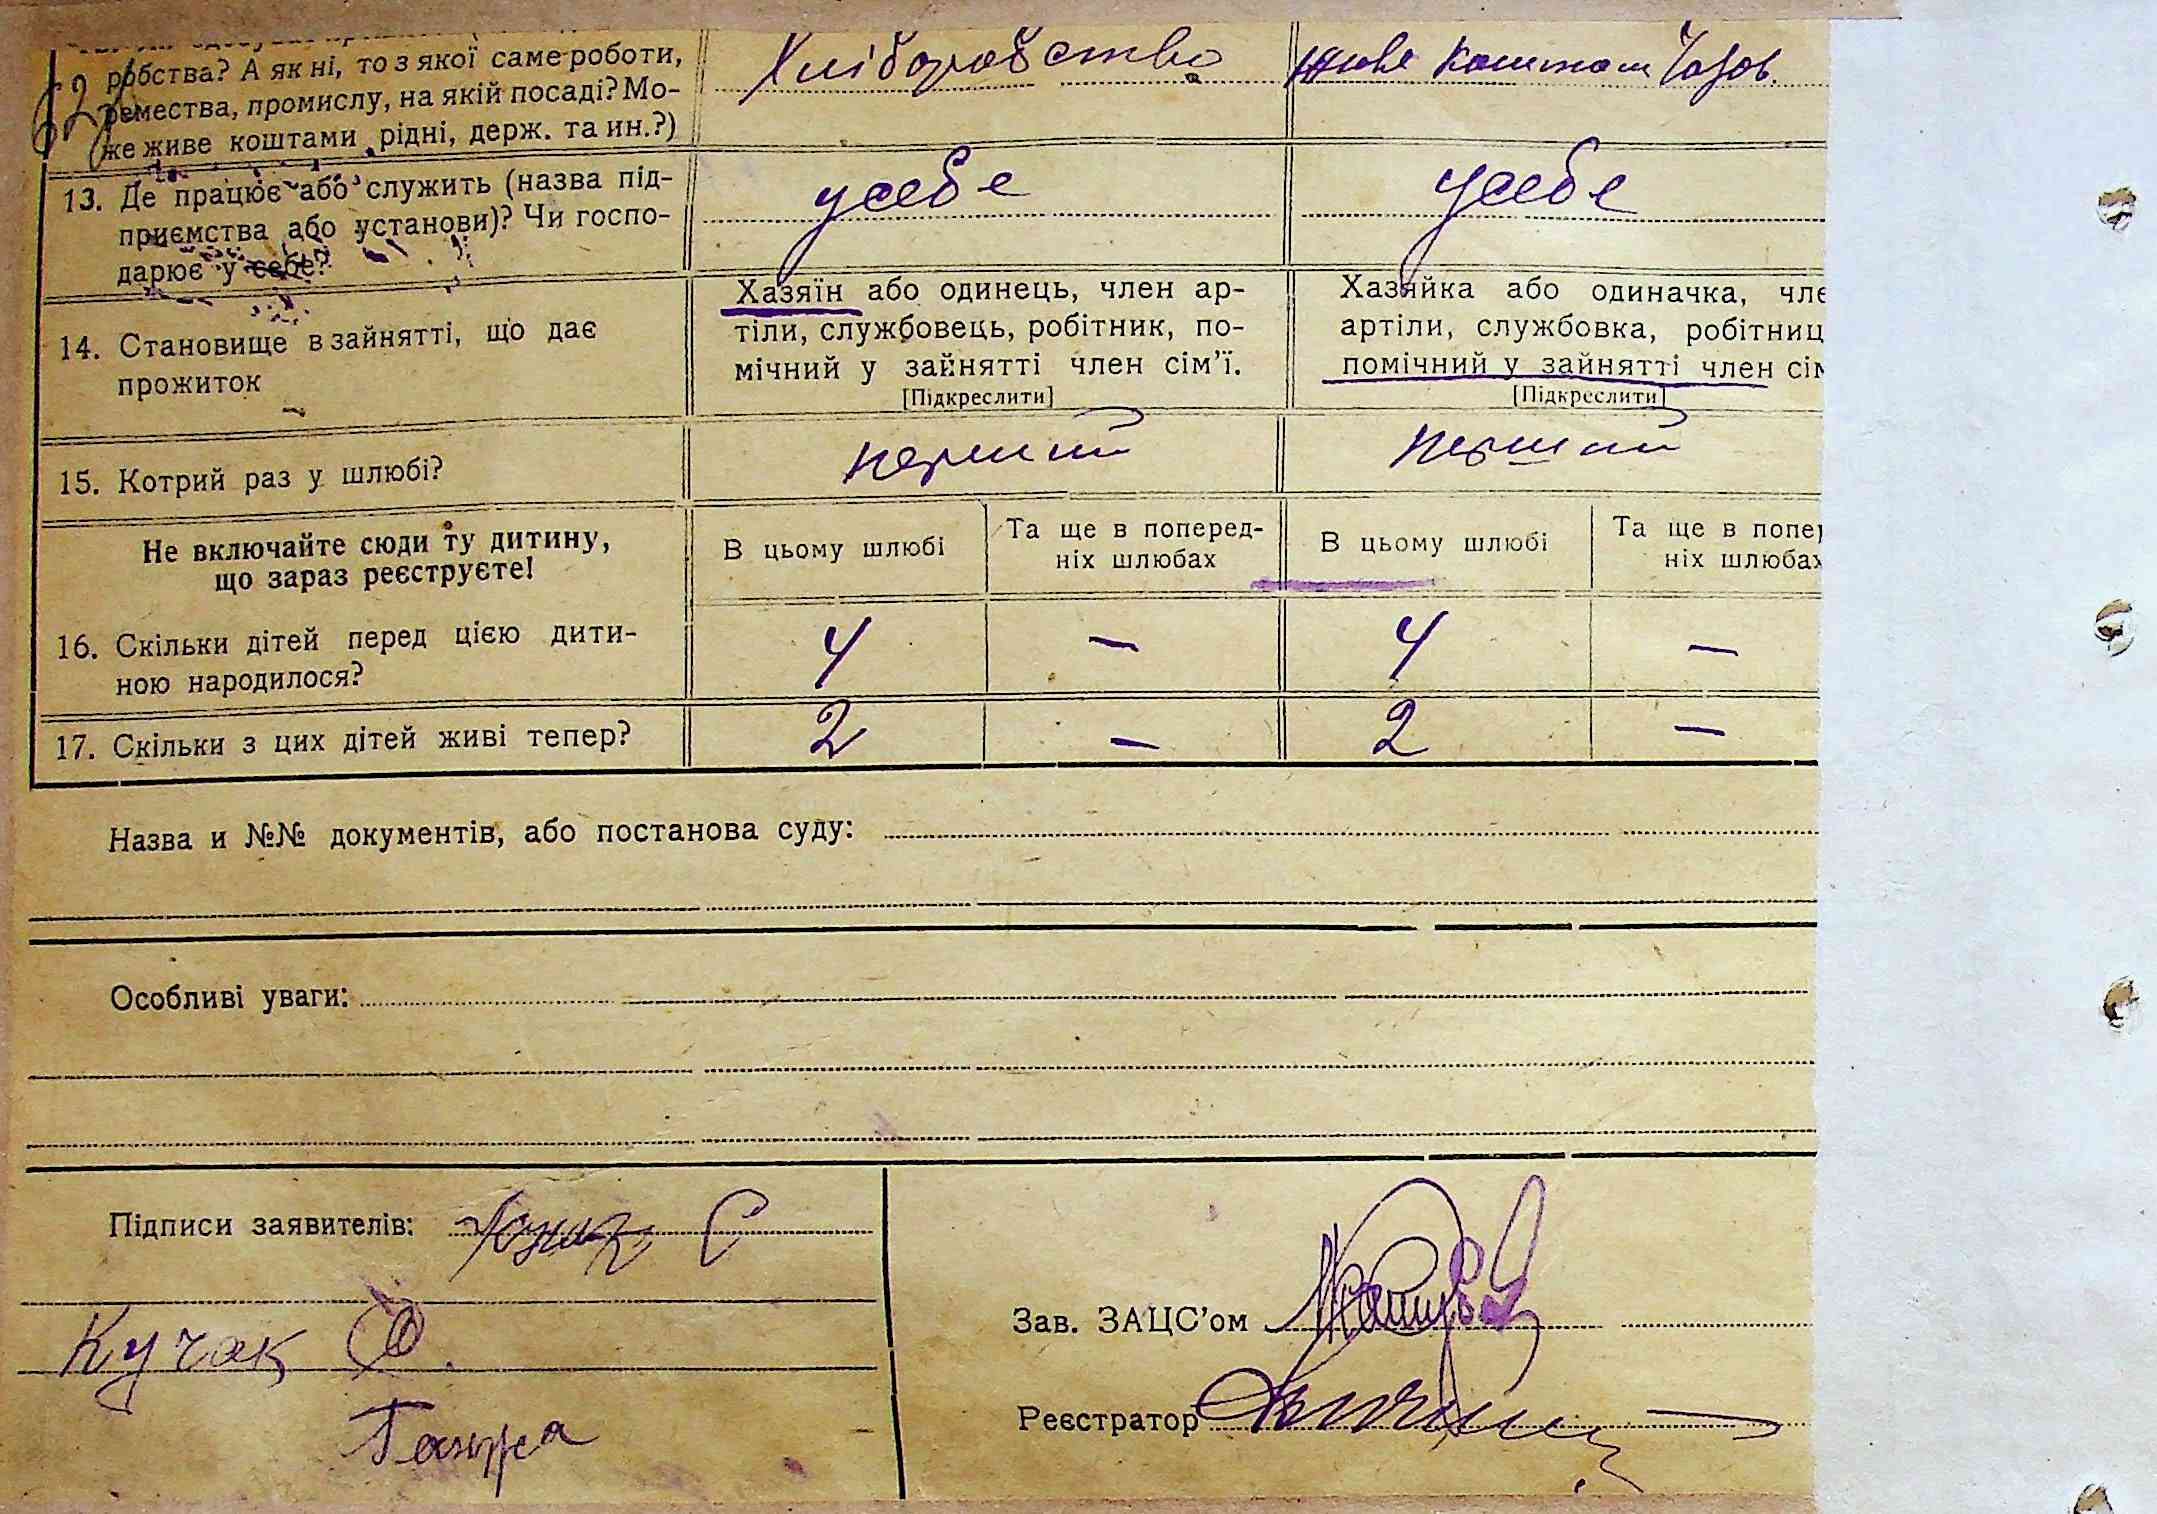 робства? А як ні, то з якої саме роботи,
ремества, промислу, на якій посаді? Мо-
же живе коштами рідні, держ. та ин.?)
Хліборобство
живе коштам
13. Де працює або служить (назва під-
приємства або установи)? Чи госпо-
дарює у себе?
усебе
усебе
14. Становище в зайнятті, що дає
прожиток
Хазяїн або одинець, член ар-
тіли, службовець, робітник, по-
мічний у зайнятті член сім'ї.
[Підкреслити]
Хазяйка або одиначка, чле
артіли, службовка, робітниц
помічний у зайнятті член сім
[Підкреслити]
15. Котрий раз у шлюбі?
перший
перший
Не включайте сюди ту дитину,
що зараз реєструєте!
В цьому шлюбі
Та ще в поперед-
ніх шлюбах
В цьому шлюбі
Та ще в попер
ніх шлюбах
16. Скільки дітей перед цією дити-
ною народилося?
4 — 4 —
17. Скільки з цих дітей живі тепер?
2 — 2 —
Назва и №№ документів, або постанова суду:
Особливі уваги:
Підписи заявителів:
Кучак
Ганна
Зав. ЗАЦС'ом
Реєстратор